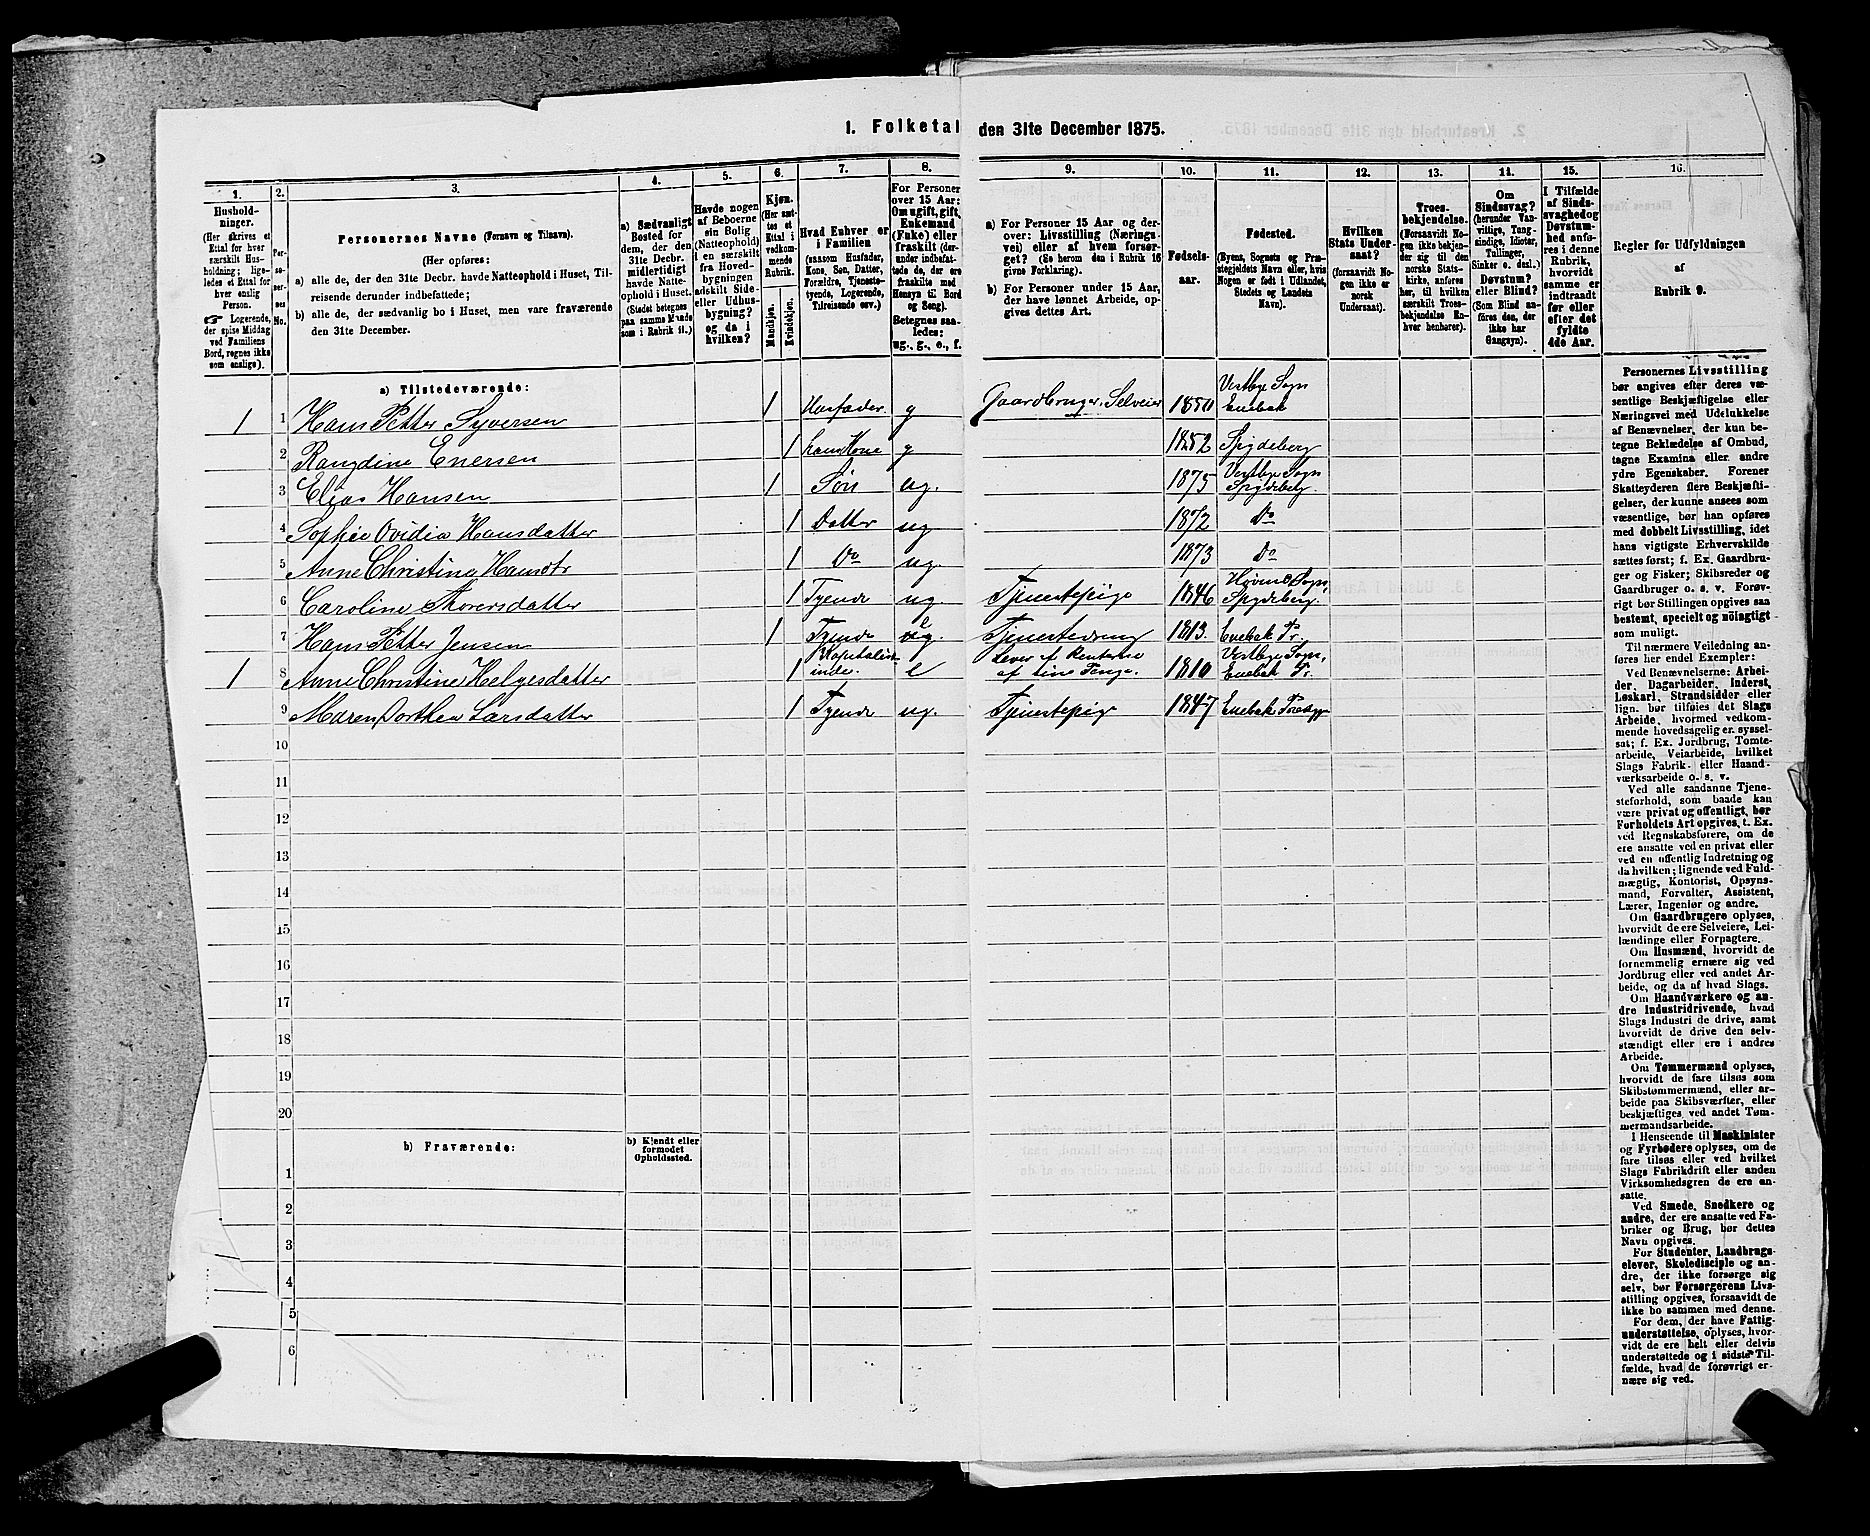 1. Folketal den 31te December 1875.
1. 2. 3. 4. 5. 6. 7. 8. 9. 10. 11. 12. 13. 14. 15. 16.
Hushold-
ninger.
(Her skrives et
Ettal for hver
særskilt Hus-
holdning; lige-
ledes et Ettal for
hver enslig
Person.
☞ Logerende,
der spise Middag
ved Familiens
Bord, regnes ikke
som enslige).
Per-
so-
ner-
nes
No.
Personernes Navne (Fornavn og Tilnavn).
(Her opføres:
a) alle de, der den 31te Decbr. havde Natteophold i Huset, Til-
reisende derunder indbefattede;
b) alle de, der sædvanlig bo i Huset, men vare fraværende
den 31te December.
a) Sædvanligt
Bosted for
dem, der den
31te Decbr.
midlertidigt
havde Natte-
ophold i Huset.
(Stedet betegnes
paa samme Maade
som i Rubrik 11.)
Havde nogen
af Beboerne
sin Bolig
(Natteophold)
i en særskilt
fra Hoved-
bygningen
adskilt Side-
eller Udhus-
bygning?
og da i
hvilken?
Kjøn.
(Her sæt-
tes et
Ettal i
vedkom-
mende
Rubrik.
Mandkjøn.
Kvindekjøn.
Hvad Enhver er
i Familien
(saasom Husfader,
Kone, Søn, Datter,
Forældre, Tjeneste-
tyende, Logerende,
Tilreisende osv.)
For Personer
over 15 Aar:
Om ugift, gift,
Enkemand
(Enke) eller
fraskilt (der-
under indbefat-
tede de, der ere
fraskilte med
Hensyn til Bord
og Seng).
Betegnes saa-
ledes:
ug., g., e., f.
a) For Personer 15 Aar og der-
over: Livsstilling (Nærings-
vei) eller af hvem forsør-
get? (Se herom den i Rubrik 16
givne Forklaring).
b) For Personer under 15 Aar,
der have lønnet Arbeide, op-
gives dettes Art.
Fødsels-
aar.
Fødested.
(Byens, Sognets og Præ-
stegjeldets Navn eller, hvis
Nogen er født i Udlandet,
Stedets og Landets
Navn).
Hvilken
Stats Under-
saat?
(forsaavidt No-
gen ikke er
norsk
Undersaat).
Troes-
bekjendelse.
(Forsaavidt No-
gen ikke bekjen-
der sig til den
norske Stats-
kirke, anføres
her, til hvilken
særskilt Troes-
bekjendelse En-
hver henhører).
Om
Sindssvag?
(herunder Van-
vittige, Tung-
sindige, Idioter,
Tullinger,
Sinker o. desl.).
Døvstum?
eller Blind?
(Som Blind an-
føres den, der
ikke har
Gangsyn).
I Tilfælde
af Sinds-
svaghed og
Døvstum-
hed anfø-
res i denne
Rubrik,
hvorvidt
samme er
indtraadt
før eller
efter det
fyldte
4de Aar.
Regler for Udfyldningen
af
Rubrik 9.
a) Tilstedeværende:
1 1 Hans Petter Syversen 1 Husfader g Gaardbruger, Selveier 1850 Vestbye Sogn Enebak
2 Rangdine Enersen 1 hans Kone g 1852 Spydeberg
3 Elias Hansen 1 Søn ug. 1875 Vestbye Sogn Spydeberg.
4 Sophie Ovidia Hansdatter 1 Datter ug 1872 Do
5 Anne Christine Hansdtr 1 Do ug. 1873 Do
6 Caroline Thoversdatter 1 Tyende ug. Tjenestepige 1846 Hovins Sogn, Spydeberg.
7 Hans Petter Jensen 1 Tyende e Tjenestedreng 1813. Enebak Pr.
1 8 Anne Christine Helgesdatter 1 Kapitalist- inde. e Lever af Renterne af sine Penge. 1810 Vestbye Sogn, Enebak Pr.
9 Maren Dorthea Larsdatter 1 Tyende ug. Tjenestepige 1847 Enebak
10
11
12
13
14
15
16
17
18
19
20
b) Fraværende:
b) Kjendt eller
formodet
Opholdssted.
1
2
3
4
5
6
Personernes Livsstilling
bør angives efter deres væ-
sentlige Beskjæftigelse eller
Næringsvei med Udelukkelse
af Benævnelser, der kun be-
tegne Beklædelse af Ombud,
tagne Examina eller andre
ydre Egenskaber. Forener
Skatteyderen flere Beskjæfti-
gelser, der kunne ansees som
væsentlige, bør han opføres
med dobbelt Livsstilling, idet
hans vigtigste Erhvervskilde
sættes først; f. Ex. Gaardbru-
ger og Fisker; Skibsreder og
Gaardbruger o. s. v. Forøv-
rigt bør Stillingen opgives saa
bestemt, specielt og nøiagtigt
som muligt.
Til nærmere Veiledning an-
føres her endel Exempler:
Ved Benævnelserne: Arbei-
der, Dagarbeider, Inderst,
Løskarl, Strandsidder eller
lign. bør tilføies det Slags
Arbeide, hvormed vedkom-
mende hovedsagelig er syssel-
sat; f. Ex. Jordbrug, Tomte-
arbeide, Veiarbeide, hvilket
Slags Fabrik- eller Haand-
værksarbeide o. s. v.
Ved alle saadanne Tjene-
steforhold, som baade kan
være privat og offentligt, bør
Forholdets Art opgives, t. Ex.
ved Regnskabsførere, om de
ere ansatte ved en privat eller
ved en offentlig Indretning og
da hvilken; lignende ved Fuld-
mægtig, Kontorist, Opsyns-
mand, Forvalter, Assistent,
Lærer, Ingeniør og andre.
Om Gaardbrugere oplyses,
hvorvidt de ere Selveiere, Lei-
lændinge eller Forpagtere.
Om Husmænd, hvorvidt de
fornemmelig ernære sig ved
Jordbrug eller ved andet Ar-
beide, og da af hvad Slags.
Om Haandværkere og an-
dre Industridrivende, hvad
Slags Industri de drive, samt
hvorvidt de drive den selv-
stændigt eller ere i andres
Arbeide.
Om Tømmermænd oplyses,
hvorvidt de fare tilsøs som
Skibstømmermænd, eller ar-
beide paa Skibsværfter, eller
beskjæftiges ved andet Tøm-
mermandsarbeide.
I Henseende til Maskinister
og Fyrbødere oplyses, om de
fare tilsøs eller ved hvilket
Slags Fabrikdrift eller anden
Virksomhedsgren de ere an-
satte.
Ved Smede, Snedkere og
andre, der ere ansatte ved Fa-
briker og Brug, bør dettes
Navn opgives.
For Studenter, Landbrugs-
elever, Skoledisciple og an-
dre, der ikke forsørge sig
selv, bør Forsørgerens Livs-
stilling opgives, forsaavidt de
ikke bo sammen med denne.
For dem, der have Fattig-
understøttelse, oplyses, hvor-
vidt de ere helt eller delvis
understøttede og i sidste Til-
fælde, hvad de forøvrigt er-
nære sig ved.